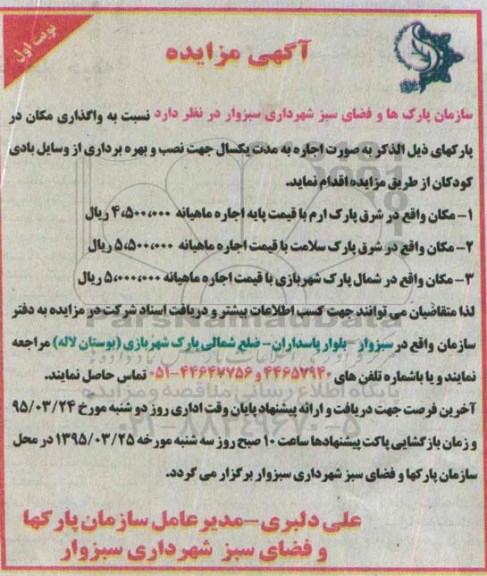 نوبت اول
آگهی مزایده
سازمان پارک ها و فضای سبز شهرداری سبزوار در نظر دارد نسبت به واگذاری مکان در
پارکهای ذیل الذکر به صورت اجاره به مدت یکسال جهت نصب و بهره برداری از وسایل بادی
کودکان از طریق مزایده اقدام نماید.
۱- مکان واقع در شرق پارک ارم با قیمت پایه اجاره ماهیانه ۴،۵۰۰،۰۰۰ ریال
۲- مکان واقع در شرق پارک سلامت با قیمت اجاره ماهیانه ۵،۵۰۰،۰۰۰ ریال
۳- مکان واقع در شمال پارک شهربازی با قیمت اجاره ماهیانه ۵،۰۰۰،۰۰۰ ریال
لذا متقاضیان می توانند جهت کسب اطلاعات بیشتر و دریافت اسناد شرکت در مزایده به دفتر
سازمان واقع در سبزوار - بلوار پاسداران - ضلع شمالی پارک شهربازی (بوستان لاله) مراجعه
نمایند و یا باشماره تلفن های ۴۴۶۵۷۹۴۰ و ۴۴۶۴۷۷۵۶-۰۵۱ تماس حاصل نمایند.
آخرین فرصت جهت دریافت و ارائه پیشنهاد پایان وقت اداری روز دو شنبه مورخ ۹۵/۰۳/۲۴
و زمان بازگشایی پاکت پیشنهادها ساعت ۱۰ صبح روز سه شنبه مورخه ۱۳۹۵/۰۳/۲۵ در محل
سازمان پارکها و فضای سبز شهرداری سبزوار برگزار می گردد.
علی دلبری - مدیر عامل سازمان پارکها
و فضای سبز شهرداری سبزوار
ParsNamadData
پایگاه اطلاع رسانی مناقصه و مزایده
۰۲۱-۸۸۳۴۹۶۷۰-۵